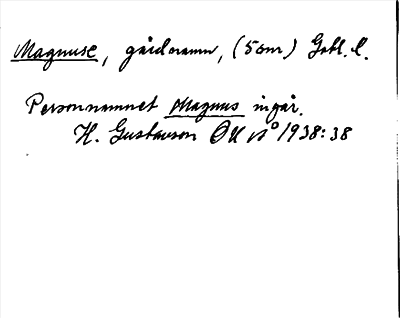 Magnuse, gårdnamn, (5 omr) Gotl. l.
Personnamnet Magnus ingår.
H. Gustavson ÖK nº 1938:38